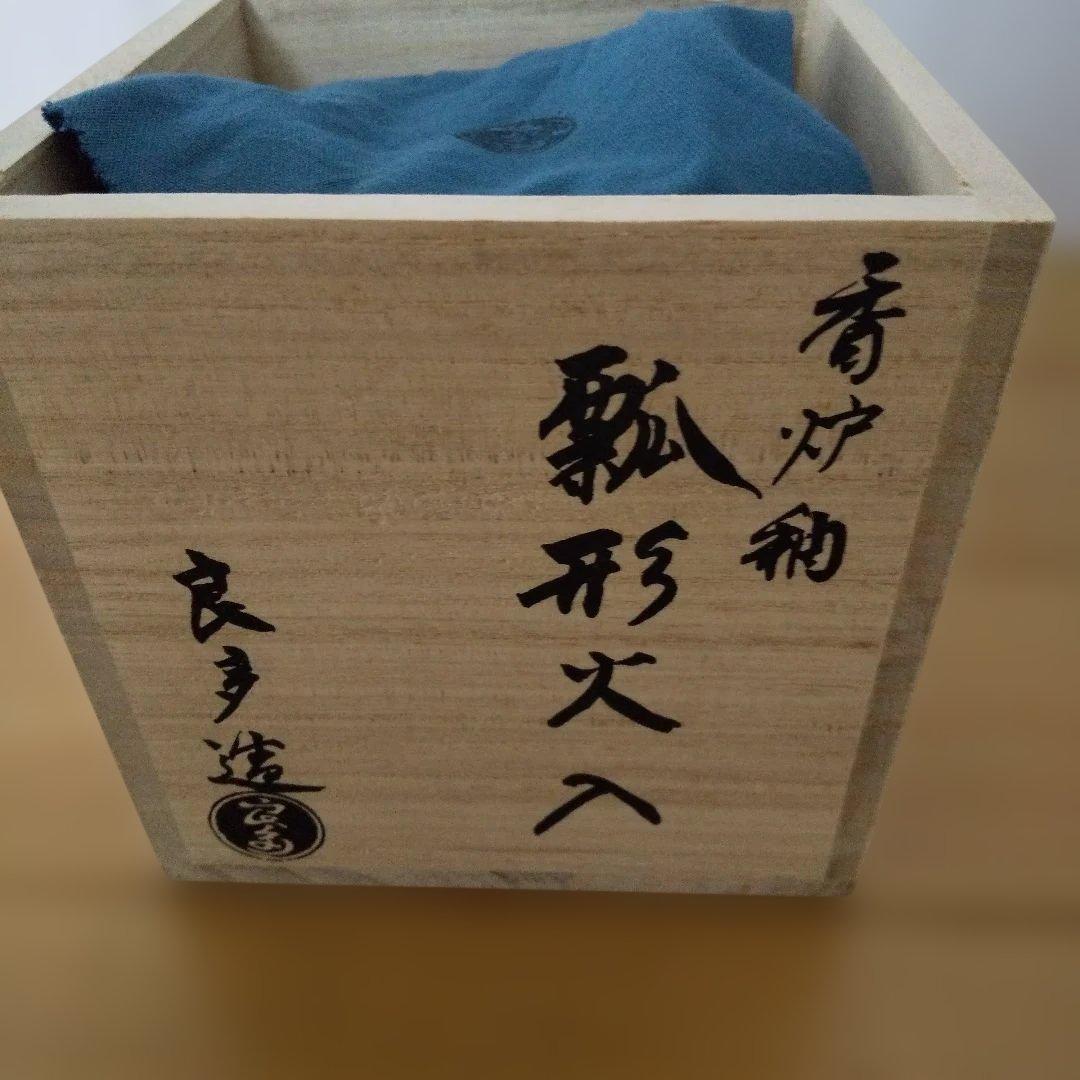 香炉釉
瓢形火入
良多造